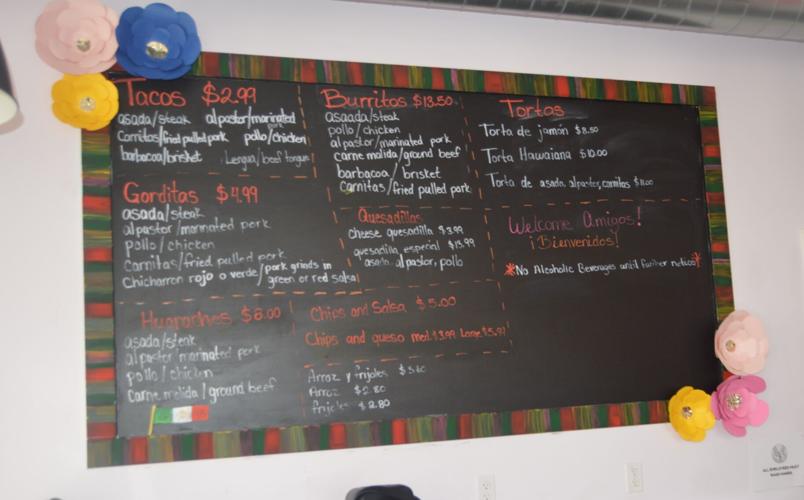 Tacos $2.99
asada/steak al pastor/marinated pork
Carnitas/fried pulled pork pollo/chicken
barbacoa/brisket Lengua/beef tongue
Gorditas $4.99
asada/steak
al pastor/marinated pork
pollo/chicken
Carnitas/fried pulled pork
Chicharron rojo o verde/pork grinds in green or red salsa
Huaraches $8.00
asada/steak
al pastor marinated pork
pollo/chicken
Carne molida/ground beef
Burritos $13.50
asaada/steak
pollo/chicken
al pastor/marinated pork
carne molida/ground beef
barbacoa/brisket
Carnitas/fried pulled pork
Quesadillas
cheese quesadilla $3.99
quesadilla especial $13.99
asada, al pastor, pollo
Chips and Salsa $5.00
Chips and queso med. $3.99 Large
Arroz y frijoles
Arroz
frijoles $2.80
Tortas
Torta de jamón $8.50
Torta Hawaiana $10.00
Torta de asada, al pastor, carnitas $11.00
Welcome Amigos!
¡Bienvenidos!
*No Alcoholic Beverages until further notice*
ALL EMPLOYEES MUST
WASH HANDS